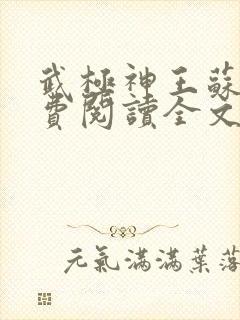 武極神王蘇
費閱讀全文
元氣滿滿葉落